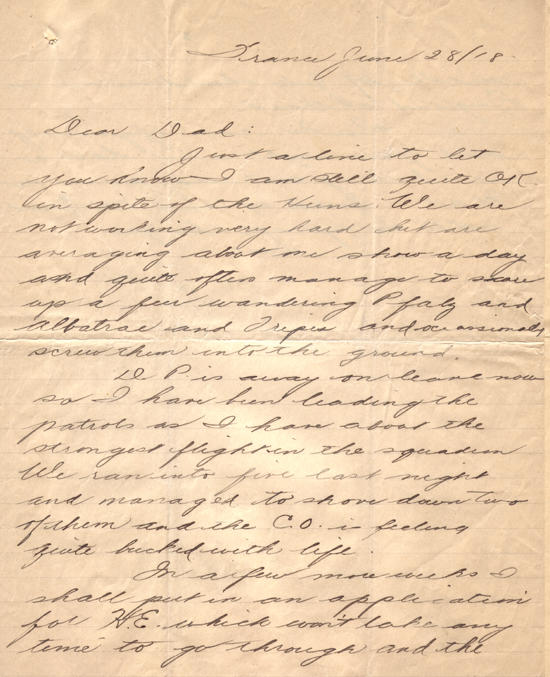 France June 28/18.
Dear Dad:
Just a line to let
you know I am still quite OK
in spite of the Huns. We are
not working very hard but are
averaging about one show a day
and quite often manage to scare
up a few wandering Pfalz and
Albatrae and Tripes and occasionally
screw them into the ground.
D P. is away on leave now
so I have been leading the
patrols as I have about the
strongest flight in the squadron
We ran into five last night
and managed to shove down two
of them and the C.O. is feeling
quite bucked with life.
In a few more weeks I
shall put in an application
for H.E. which won't take any
time to go through and the